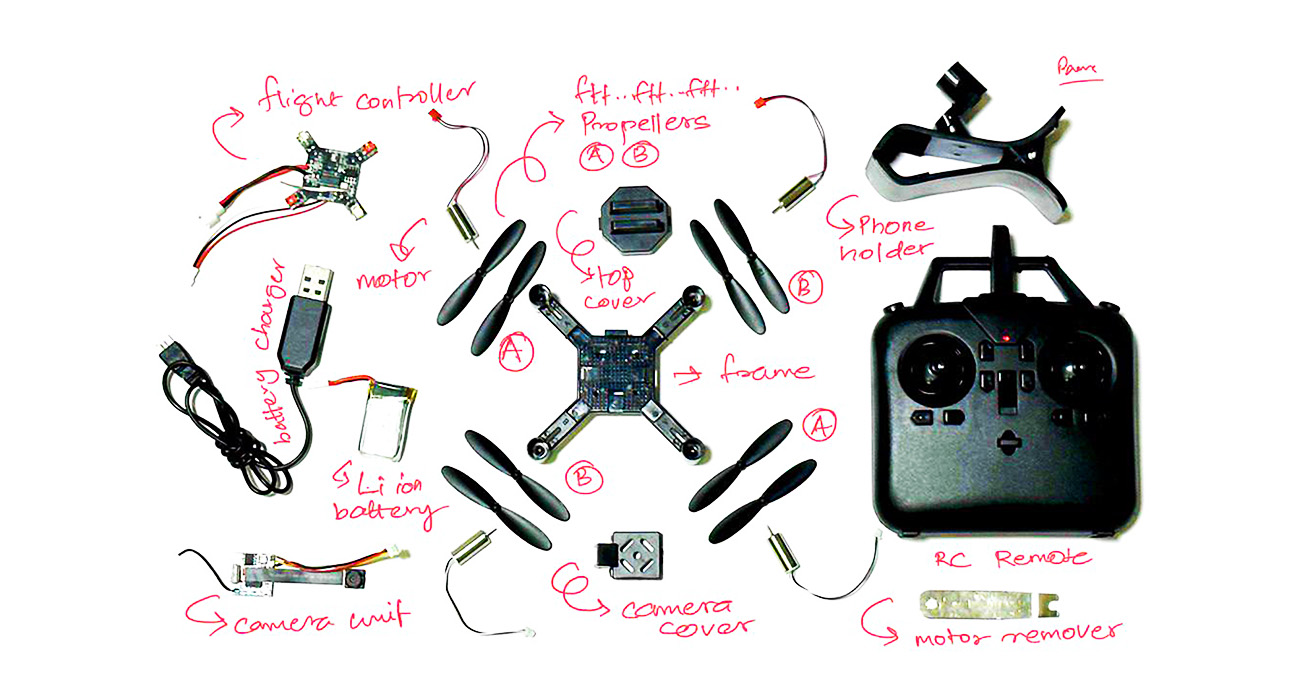 flight controller
fff..fff...fff..
Propellers
A B
motor
top
cover
B
Phone
holder
battery charger
A
frame
A
B
Li ion
battery
RC Remote
camera unit
camera
cover
motor remover